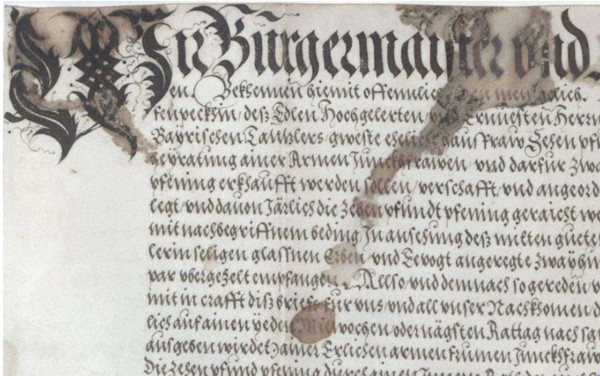 Wir Bürgermaister und
en. Bekhennen hiemit offennlich
deß Edlen Hochgelerten und Ernuesten Herrn
Bayrischen Canntzlers geweste eheliche haussfraw Zehen
heyratung ainer Armen Junckhfrawen, vnd darfür zwa
pfening erkhaufft werden sollen, verschafft, vnd angeord
legt, vnd dauon Järlich die Zehen pfundt pfening geraicht we
mit nachbegriffnem beding In ansehung deß milten guete
lerin seligen glassnen Erben vnd Bevogt angeregte zwayhun
par vbergezelt empfangen. Allso vnd demnach so gereden
mit in crafft diß briefs für vns vnd all vnser Nachkhomen d
lich auf ainen yeden Mitwochen oder nägsten Rattag nach
ausgeben wirdet, ainer Erlichen armen frumen Junckhfraw
Die zehen pfund pfening durch ainen Innern Rath